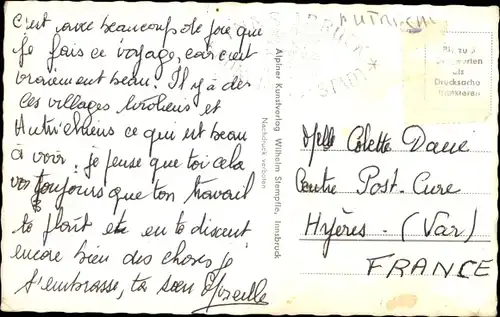 C'est avec beaucoup de joie que
je fais ce voyage, car c'est
vraiement beau. Il y a des
ces villages tiroliens et
Autrichiens ce qui est beau
à voir. je pense que toi cela
va toujours que ton travail
te plaît etc en te disant
encore bien des choses je
t'embrasse, ta sœur Mireille
Alpiner Kunstverlag Wilhelm Stempfle, Innsbruck
Nachdruck verboten
AUTRICHE
Bis zu 5
Worten
als
Drucksache
frankieren
Melle Colette
Centre Post-Cure
Hyères - (Var)
FRANCE